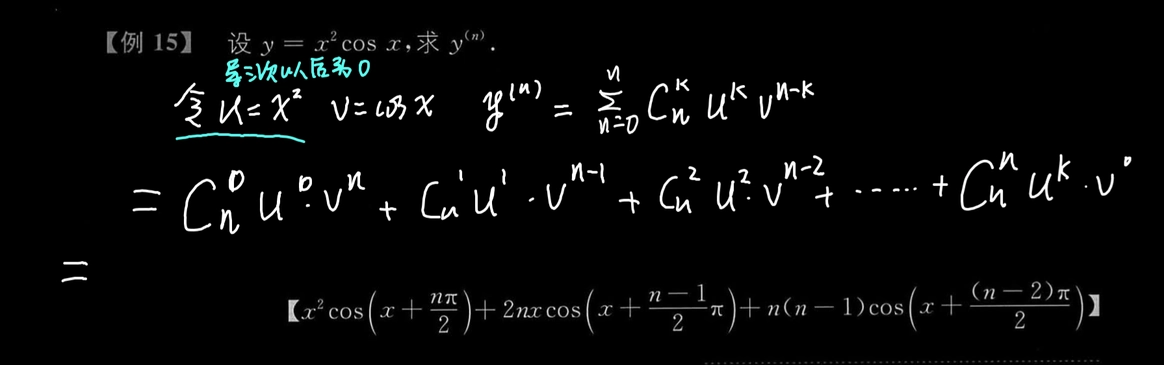 【例 15】 设 y = x² cos x,求 y⁽ⁿ⁾.
导三次以后为0
令 u = x² v = cos x y⁽ⁿ⁾ = ∑_{n=0}^{n} C_n^k u^k v^{n-k}
= C_n^0 u^0 · v^n + C_n^1 u^1 · v^{n-1} + C_n^2 u^2 · v^{n-2} + ······ + C_n^n u^k · v^0
=
【x² cos(x + nπ/2) + 2nx cos(x + (n−1)/2 π) + n(n−1) cos(x + (n−2)π/2)】